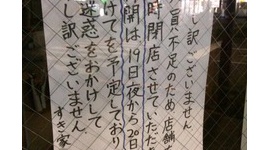 し訳ございません
員不足のため店舗
時閉店させていただ
開は19日夜から20日
けてを予定しており
迷惑をおかけして
し訳ございません
すき家